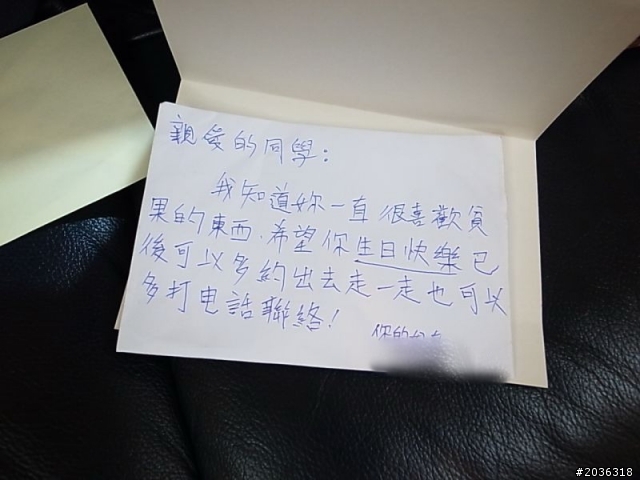 親爱的同學：
我知道妳一直很喜歡負
果的東西.希望你生日快樂已
後可以多約出去走一走也可以
多打电話聯絡！
你的
#2036318